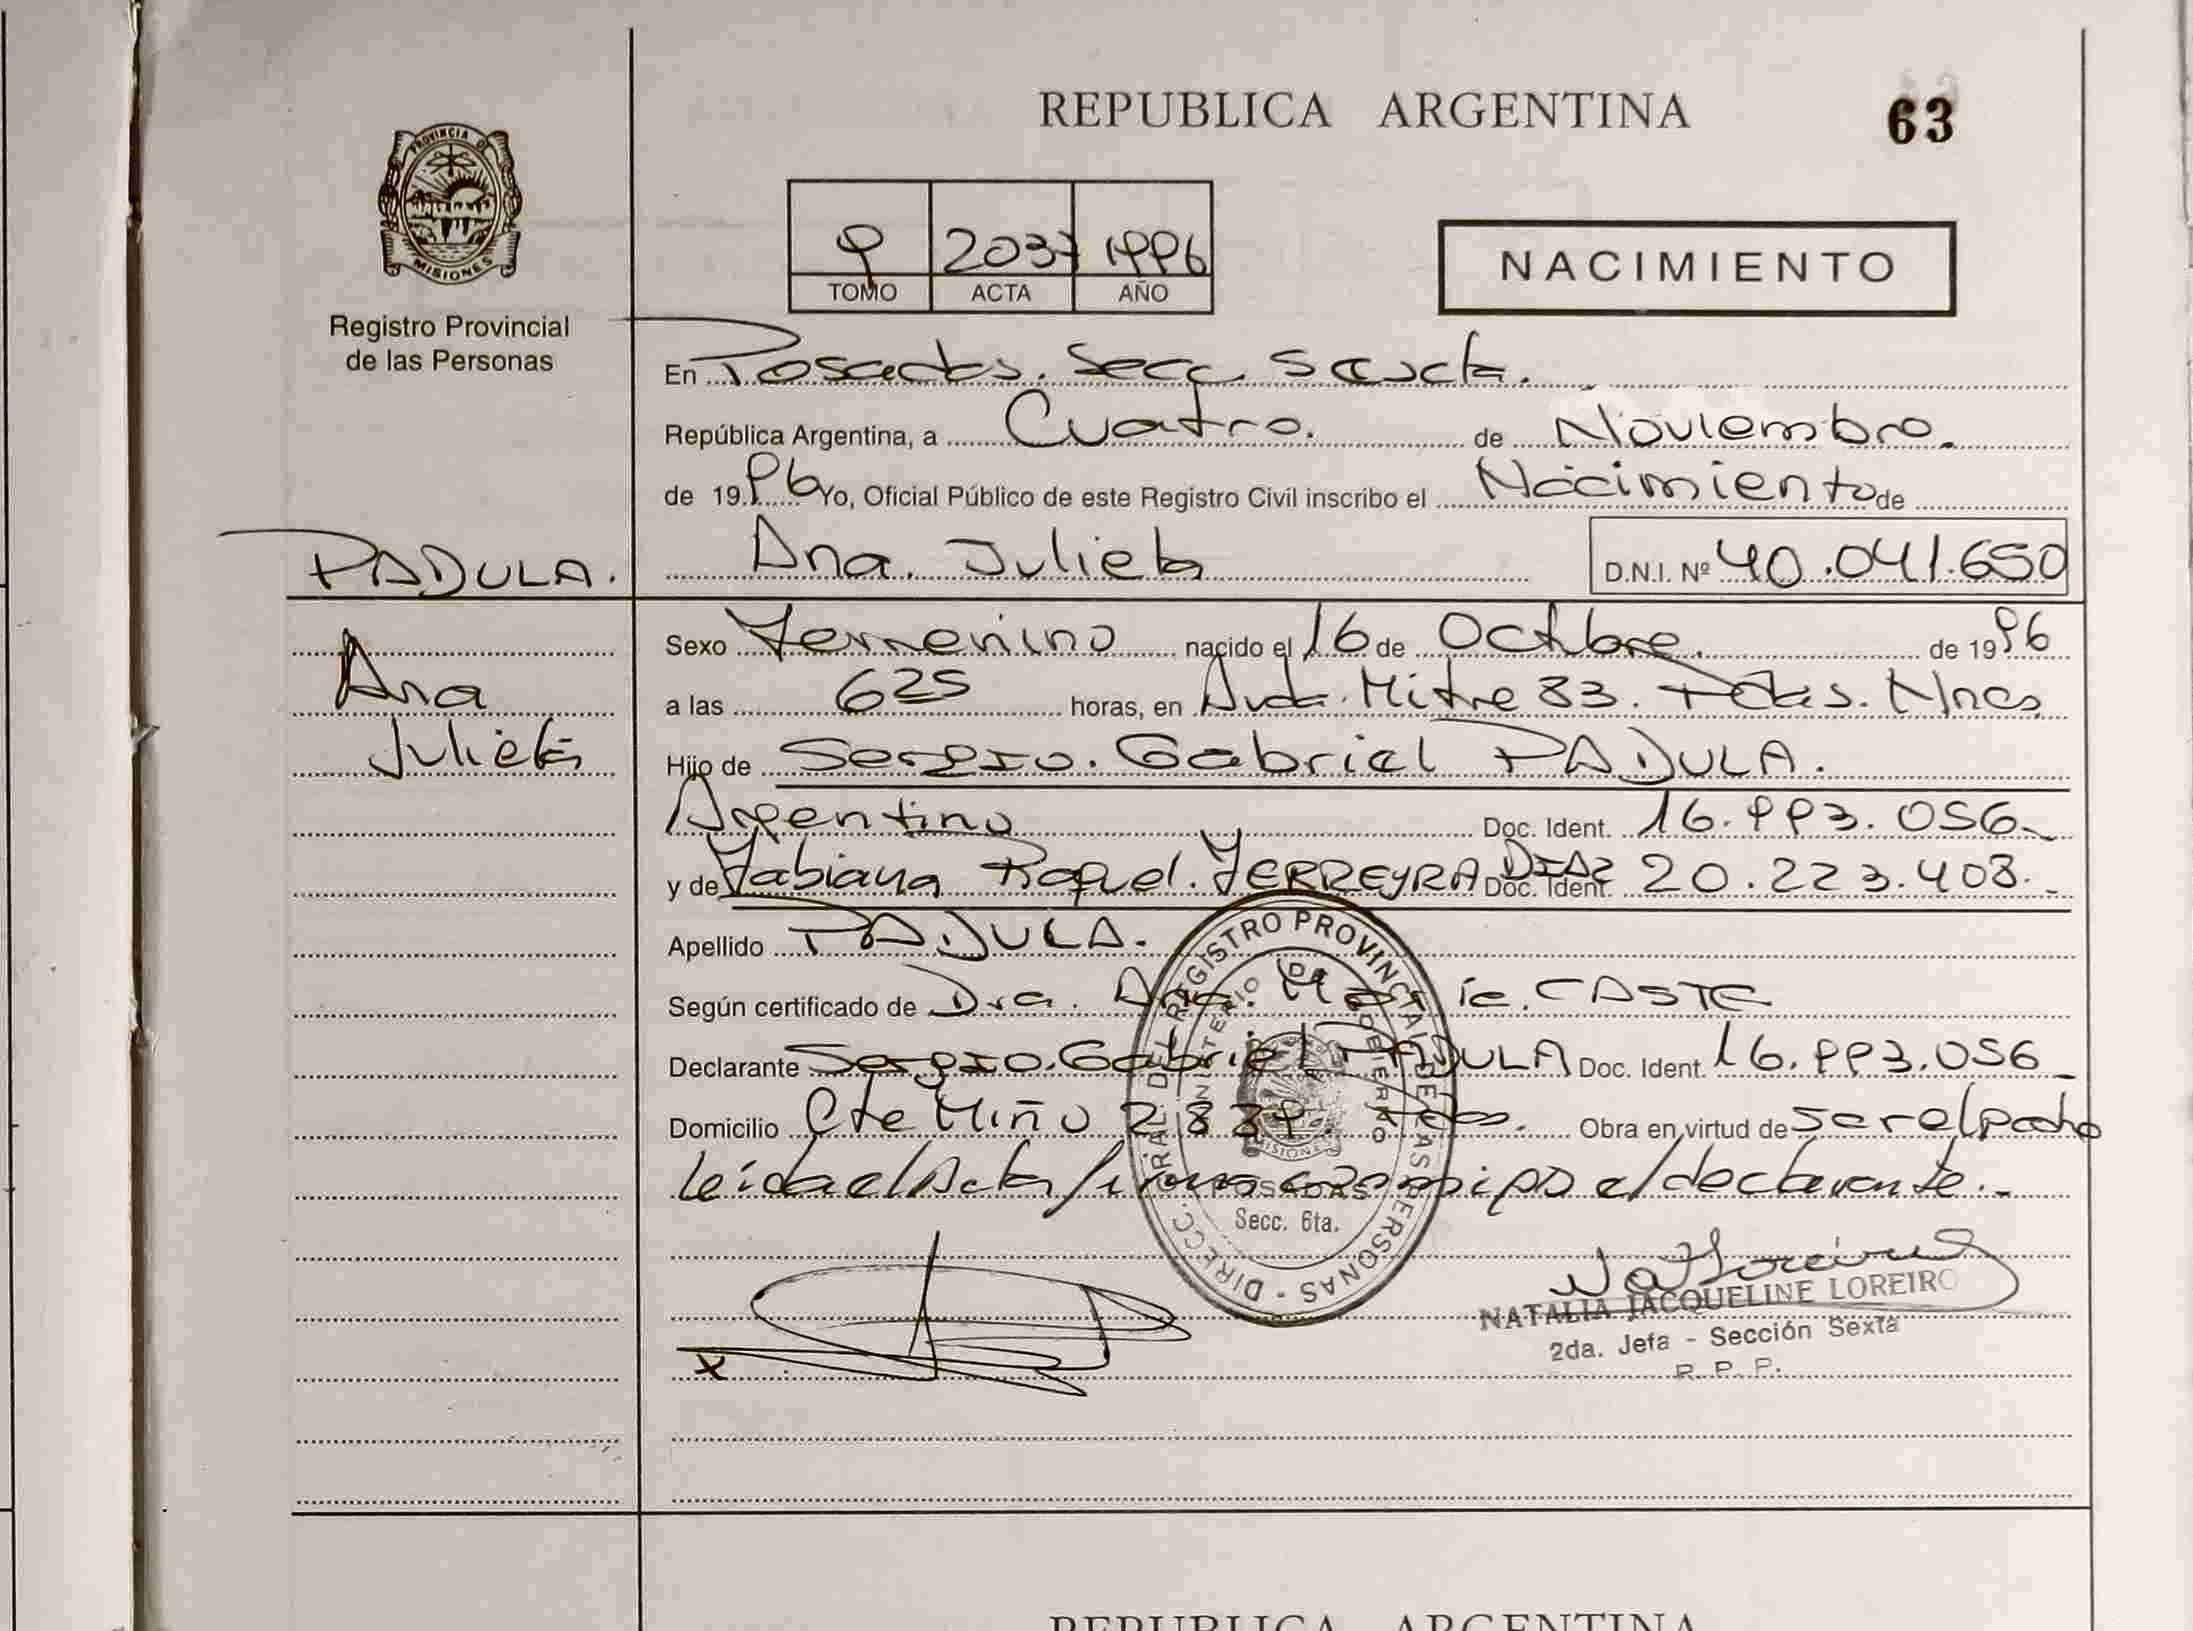 REPUBLICA ARGENTINA
63
PROVINCIA DE
MISIONES
Registro Provincial
de las Personas
9 2037 1996
TOMO ACTA AÑO
NACIMIENTO
En Posadas. Secc. Sexta.
República Argentina, a Cuatro. de Noviembre.
de 1996 Yo, Oficial Público de este Registro Civil inscribo el Nacimiento de
PADULA.
Ana. Julieta
D.N.I. Nº 40.041.650
Ana
Julieta
Sexo Femenino nacido el 16 de Octubre. de 1996
a las 625 horas, en Avda. Mitre 83. Pdas. Mnes
Hijo de Sergio. Gabriel PADULA.
Argentino Doc. Ident. 16.993.056
y de Fabiana Raquel. FERREYRA DIAZ Doc. Ident. 20.223.408.
Apellido PADULA.
Según certificado de Dra. Ana. María. CASTE
Declarante Sergio. Gabriel PADULA Doc. Ident. 16.993.056
Domicilio Cte Miño Pdas. Obra en virtud de ser el padre
leída el Acta firma conmigo el declarante.
DIRECC. GRAL. DEL REGISTRO PROVINCIAL DE LAS PERSONAS
MINISTERIO DE GOBIERNO
MISIONES
POSADAS
Secc. 6ta.
x
NATALIA JACQUELINE LOREIRO
2da. Jefa - Sección Sexta
R. P. P.
REPUBLICA ARGENTINA